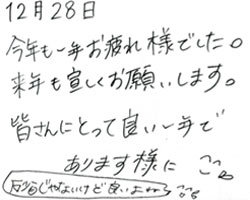 12月28日
今年も一年お疲れ様でした。
来年も宜しくお願いします。
皆さんにとって良い一年で
あります様に
じゃないけど良いよね